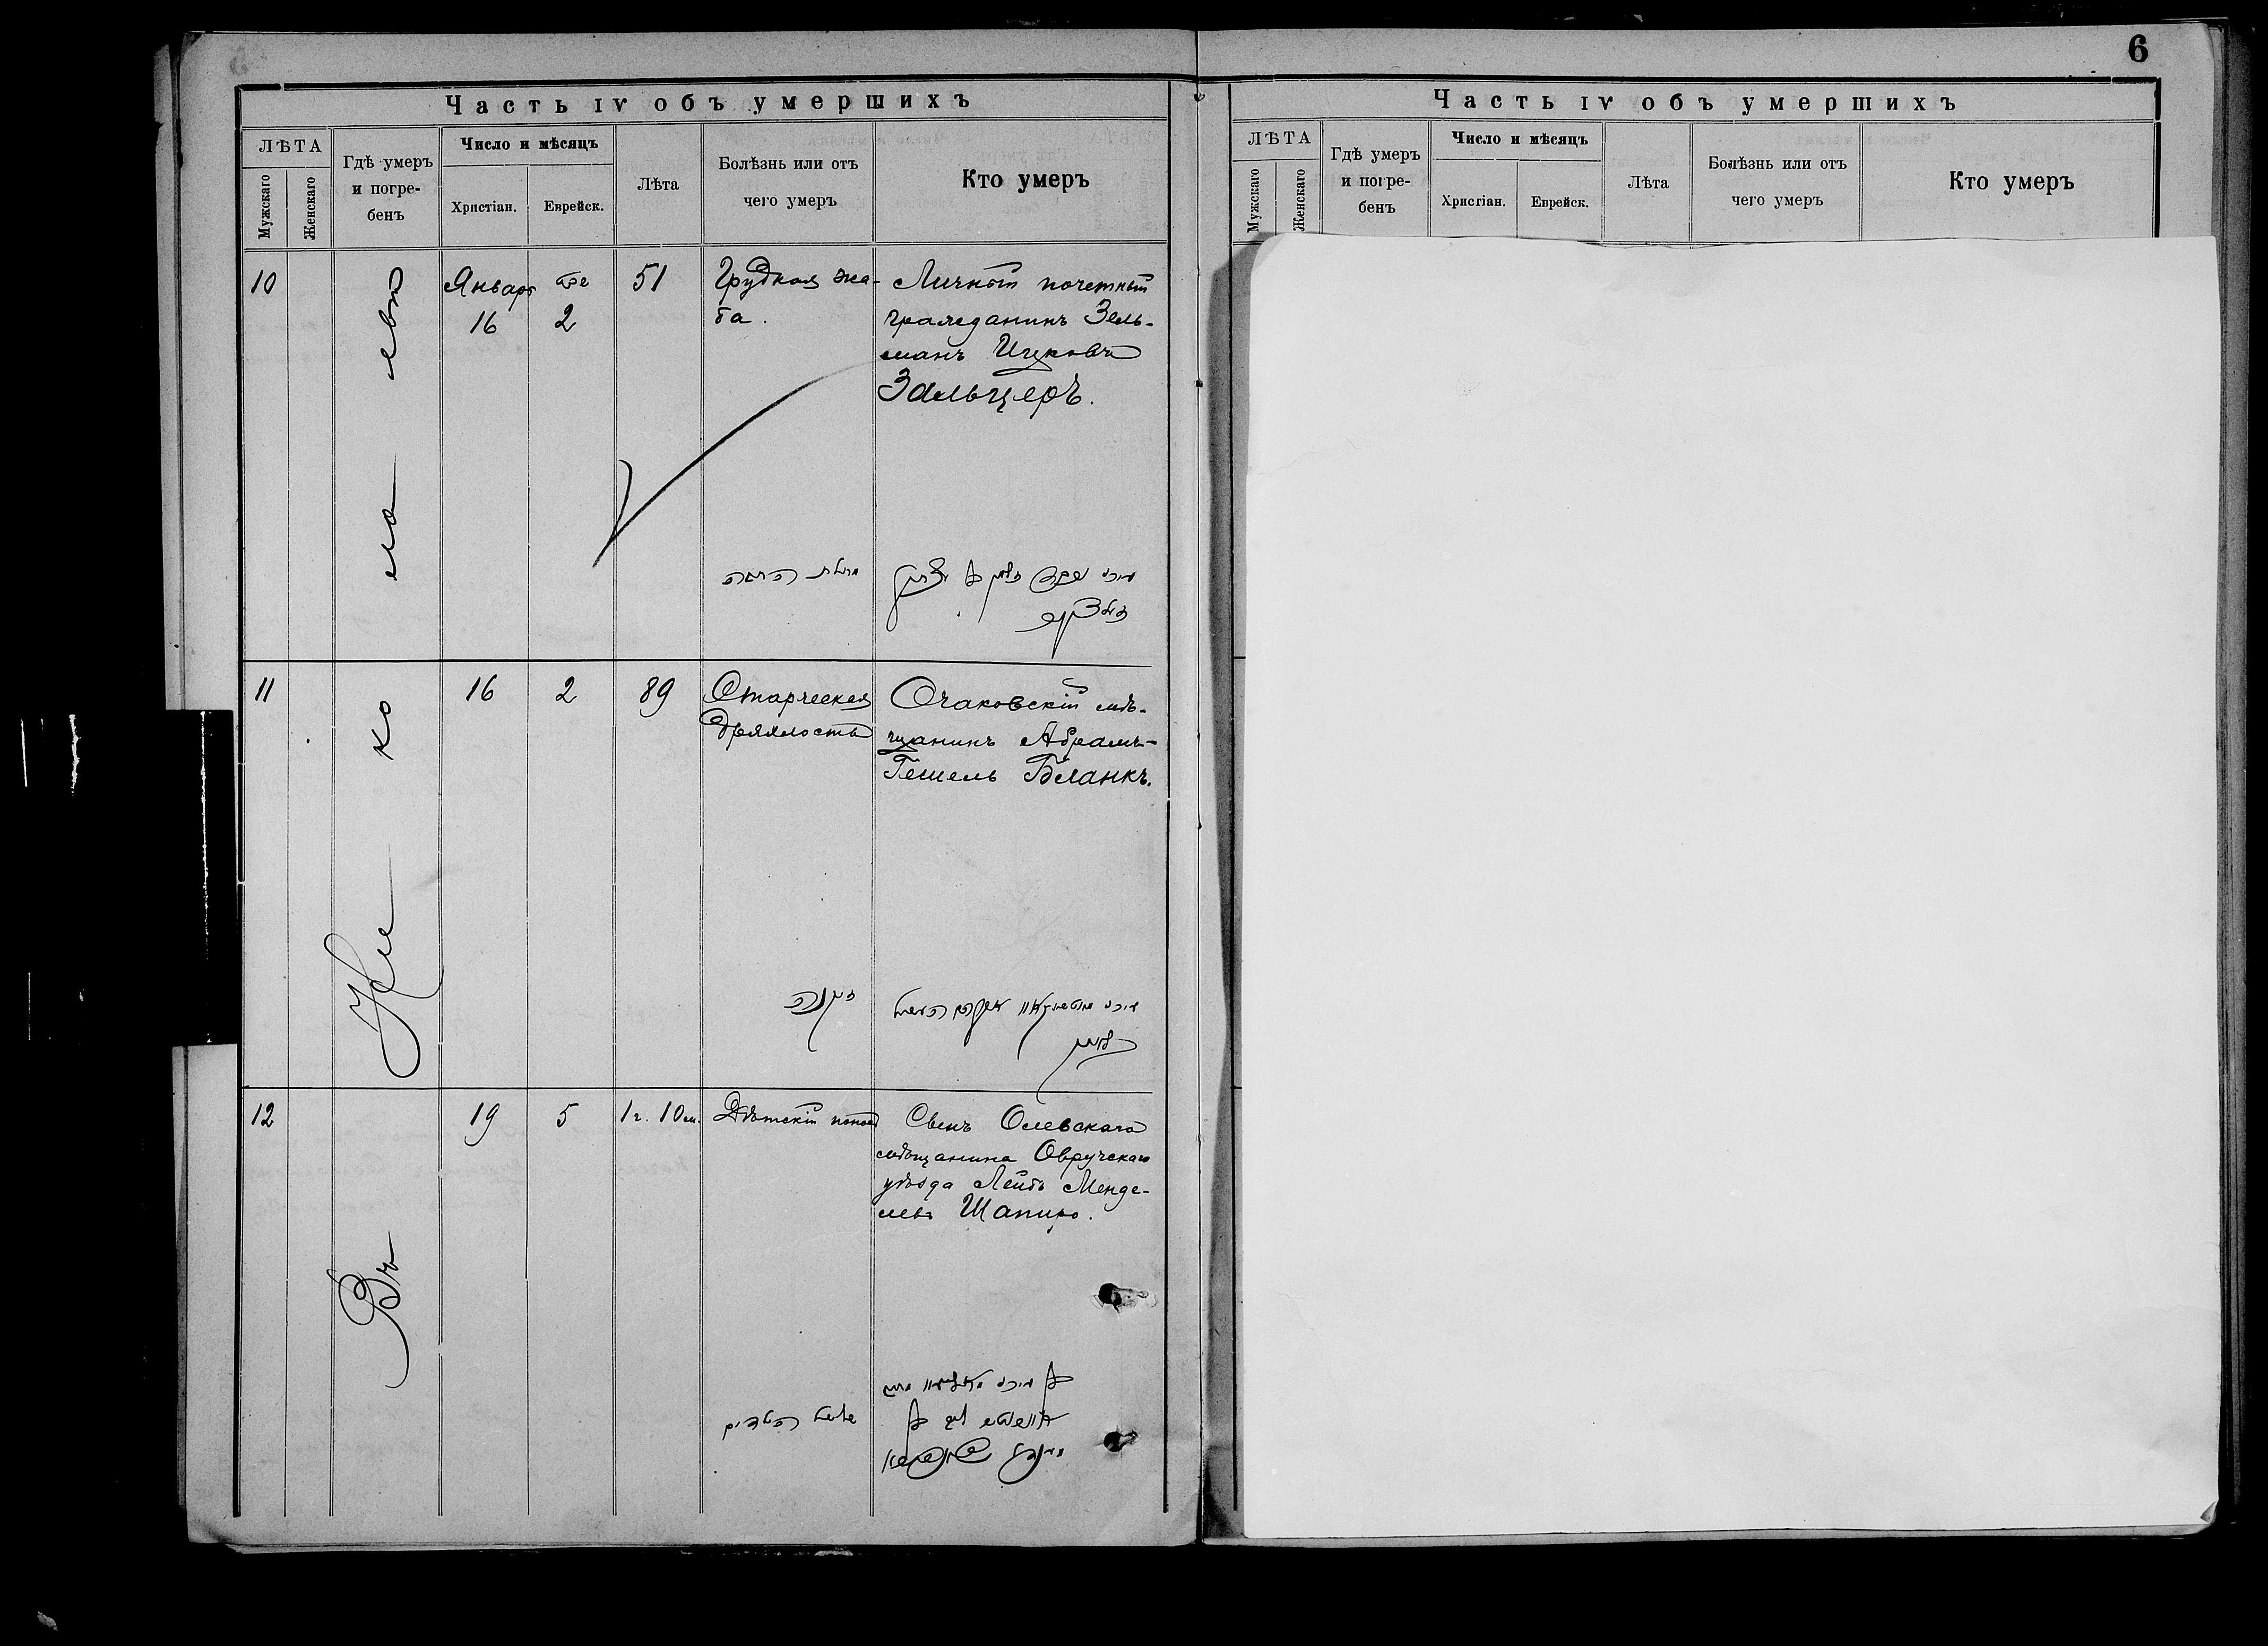 6
Часть IV объ умершихъ
ЛѢТА
Мужскаго
Женскаго
Гдѣ умеръ
и погре-
бенъ
Число и мѣсяцъ
Христіан.
Еврейск.
Лѣта
Болѣзнь или отъ
чего умеръ
Кто умеръ
Въ Николаевѣ
10
Январь
16
2
51
Грудная жа-
ба.
Личный почетный
гражданинъ Зель-
манъ Ицковъ
Зальцеръ.
11
16
2
89
Старческая
дряхлость
Очаковскій мѣ-
щанинъ Абрамъ-
Гешель Бланкъ.
זקנה
12
19
5
1 г. 10 м.
Дѣтскій
Сынъ Олевскаго
мѣщанина Овручскаго
уѣзда Лейбъ Менде-
левъ Шапиро.
Часть IV объ умершихъ
ЛѢТА
Мужскаго
Женскаго
Гдѣ умеръ
и погре-
бенъ
Число и мѣсяцъ
Христіан.
Еврейск.
Лѣта
Болѣзнь или отъ
чего умеръ
Кто умеръ